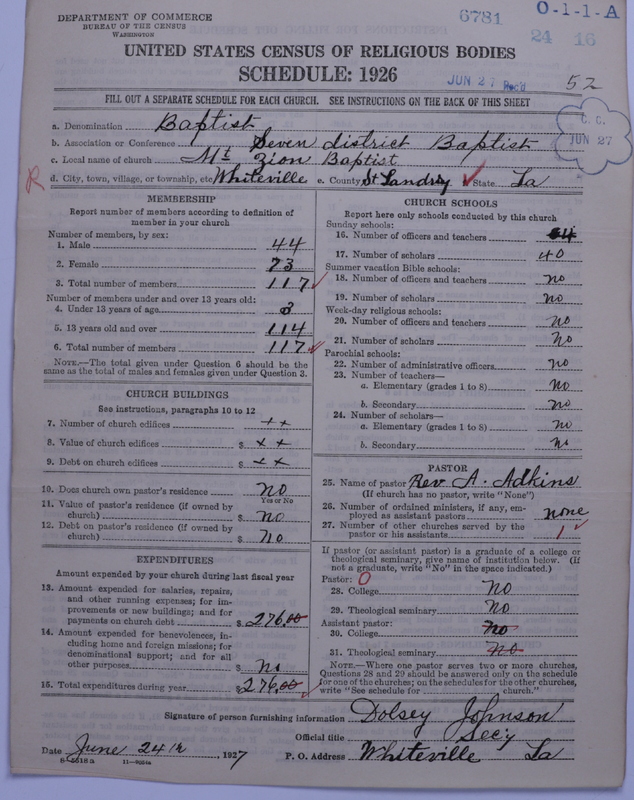 DEPARTMENT OF COMMERCE
BUREAU OF THE CENSUS
WASHINGTON
6781
O-1-1-A
24 16
UNITED STATES CENSUS OF RELIGIOUS BODIES
SCHEDULE: 1926
JUN 27 Rec'd
52
FILL OUT A SEPARATE SCHEDULE FOR EACH CHURCH. SEE INSTRUCTIONS ON THE BACK OF THIS SHEET
C. C.
JUN 27
a. Denomination Baptist
b. Association or Conference Seven district Baptist
c. Local name of church Mt Zion Baptist
R
d. City, town, village, or township, etc Whiteville e. County St Landry State La
MEMBERSHIP
Report number of members according to definition of
member in your church
Number of members, by sex:
1. Male 44
2. Female 73
3. Total number of members 117
Number of members under and over 13 years old:
4. Under 13 years of age 3
5. 13 years old and over 114
6. Total number of members 117
NOTE.—The total given under Question 6 should be
same as the total of males and females given under Question 3.
CHURCH BUILDINGS
See instructions, paragraphs 10 to 12
7. Number of church edifices ++
8. Value of church edifices $ ++
9. Debt on church edifices $ ++
10. Does church own pastor's residence No
Yes or No
11. Value of pastor's residence (if owned by
church) $ No
12. Debt on pastor's residence (if owned by
church) $ No
EXPENDITURES
Amount expended by your church during last fiscal year
13. Amount expended for salaries, repairs,
and other running expenses; for im-
provements or new buildings; and for
payments on church debt $ 276.00
14. Amount expended for benevolences, in-
cluding home and foreign missions; for
denominational support; and for all
other purposes $ No
15. Total expenditures during year $ 276.00
CHURCH SCHOOLS
Report here only schools conducted by this church
Sunday schools:
16. Number of officers and teachers 4
17. Number of scholars 40
Summer vacation Bible schools:
18. Number of officers and teachers no
19. Number of scholars no
Week-day religious schools:
20. Number of officers and teachers No
21. Number of scholars No
Parochial schools:
22. Number of administrative officers no
23. Number of teachers—
a. Elementary (grades 1 to 8) No
b. Secondary No
24. Number of scholars—
a. Elementary (grades 1 to 8) No
b. Secondary No
PASTOR
25. Name of pastor Rev A. Adkins
(If church has no pastor, write "None")
26. Number of ordained ministers, if any, em-
ployed as assistant pastors none
27. Number of other churches served by the
pastor or his assistants 1
If pastor (or assistant pastor) is a graduate of a college or
theological seminary, give name of institution below. (If
not a graduate, write "No" in the space indicated.)
Pastor: 0
28. College No
29. Theological seminary No
Assistant pastor:
30. College No
31. Theological seminary No
NOTE.—Where one pastor serves two or more churches,
Questions 28 and 29 should be answered only on the schedule
for one of the churches; on the schedules for the other churches,
write "See schedule for church."
Signature of person furnishing information Dolsey Johnson
Official title Sec'y
Date June 24th, 1927
P. O. Address Whiteville La